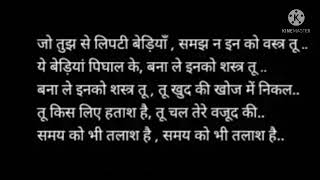 KINEMASTER
जो तुझ से लिपटी बेड़ियाँ , समझ न इन को वस्त्र तू ..
ये बेड़ियां पिघाल के, बना ले इनको शस्त्र तू ..
बना ले इनको शस्त्र तू , तू खुद की खोज में निकल..
तू किस लिए हताश है, तू चल तेरे वजूद की..
समय को भी तलाश है , समय को भी तलाश है..